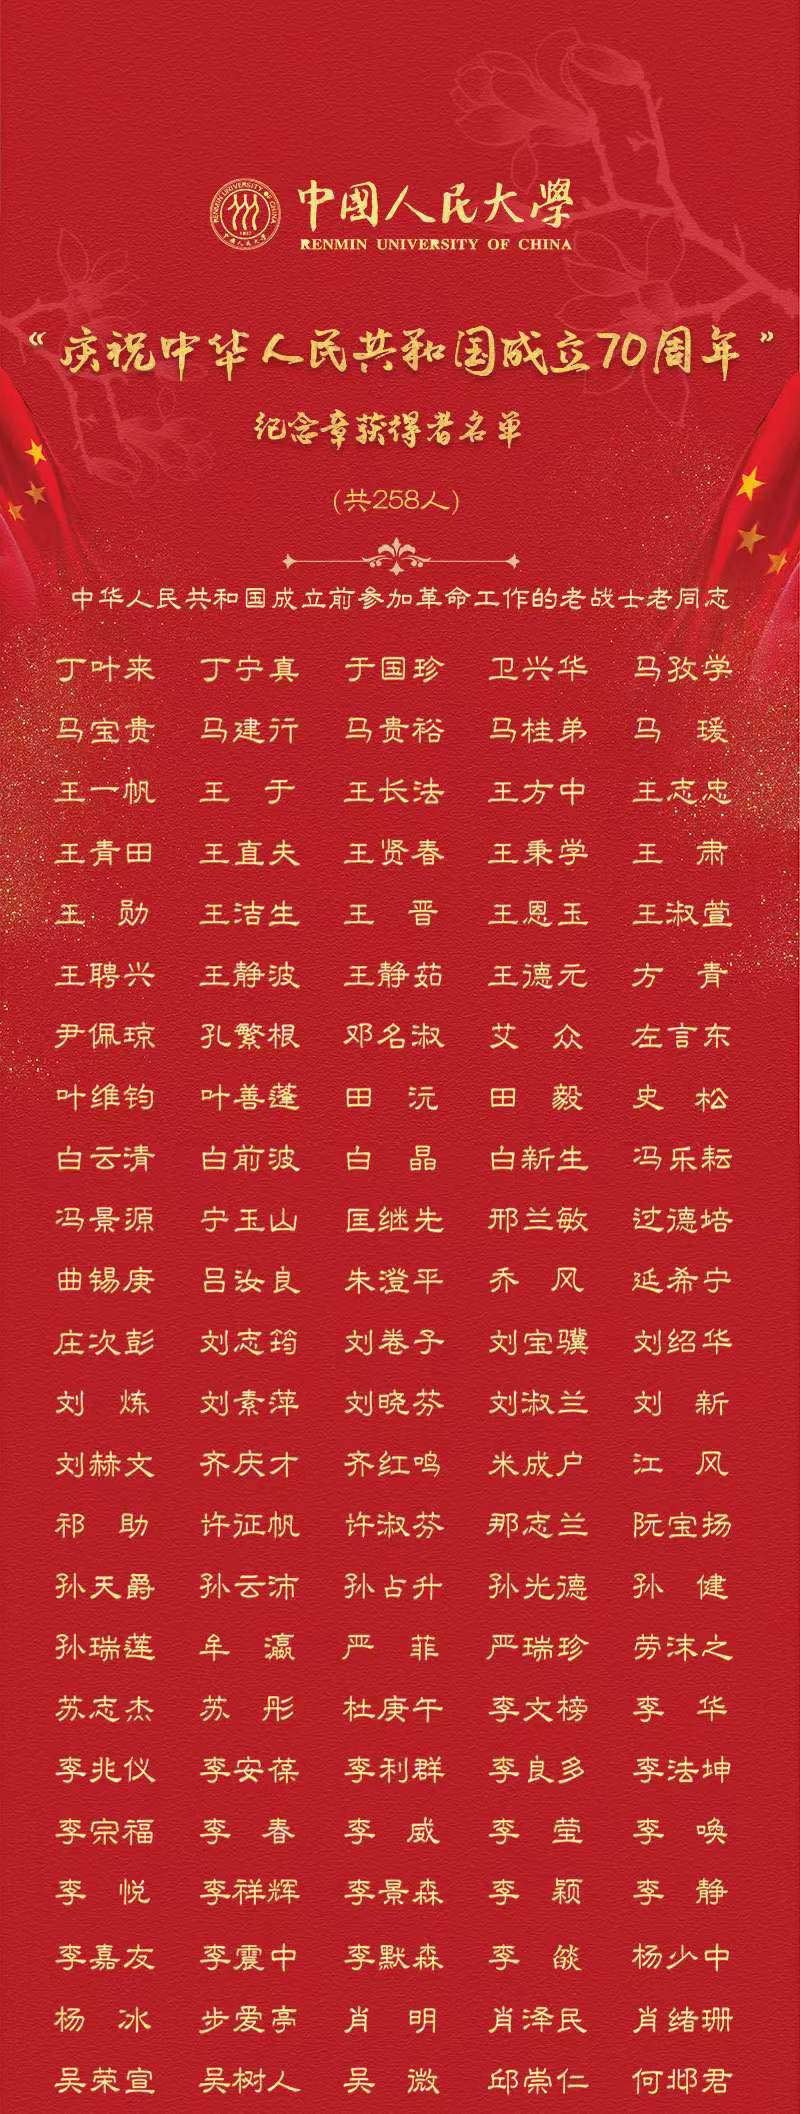 中國人民大學
RENMIN UNIVERSITY OF CHINA
RENMIN UNIVERSITY OF CHINA
1937
中国人民大学
“庆祝中华人民共和国成立70周年”
纪念章获得者名单
(共258人)
中华人民共和国成立前参加革命工作的老战士老同志
丁叶来 丁宁真 于国珍 卫兴华 马孜学
马宝贵 马建行 马贵裕 马桂弟 马 瑗
王一帆 王 于 王长法 王方中 王志忠
王青田 王直夫 王贤春 王秉学 王 肃
王 勋 王洁生 王 晋 王恩玉 王淑萱
王聘兴 王静波 王静茹 王德元 方 青
尹佩琼 孔繁根 邓名淑 艾 众 左言东
叶维钧 叶善蓬 田 沅 田 毅 史 松
白云清 白前波 白 晶 白新生 冯乐耘
冯景源 宁玉山 匡继先 邢兰敏 过德培
曲锡庚 吕汝良 朱澄平 乔 风 延希宁
庄次彭 刘志筠 刘卷子 刘宝骥 刘绍华
刘 炼 刘素萍 刘晓芬 刘淑兰 刘 新
刘赫文 齐庆才 齐红鸣 米成户 江 风
祁 助 许征帆 许淑芬 那志兰 阮宝扬
孙天爵 孙云沛 孙占升 孙光德 孙 健
孙瑞莲 牟 瀛 严 菲 严瑞珍 劳沫之
苏志杰 苏 彤 杜庚午 李文榜 李 华
李兆仪 李安葆 李利群 李良多 李法坤
李宗福 李 春 李 威 李 莹 李 唤
李 悦 李祥辉 李景森 李 颖 李 静
李嘉友 李震中 李默森 李 燄 杨少中
杨 冰 步爱亭 肖 明 肖泽民 肖绪珊
吴荣宣 吴树人 吴 微 邱崇仁 何邶君